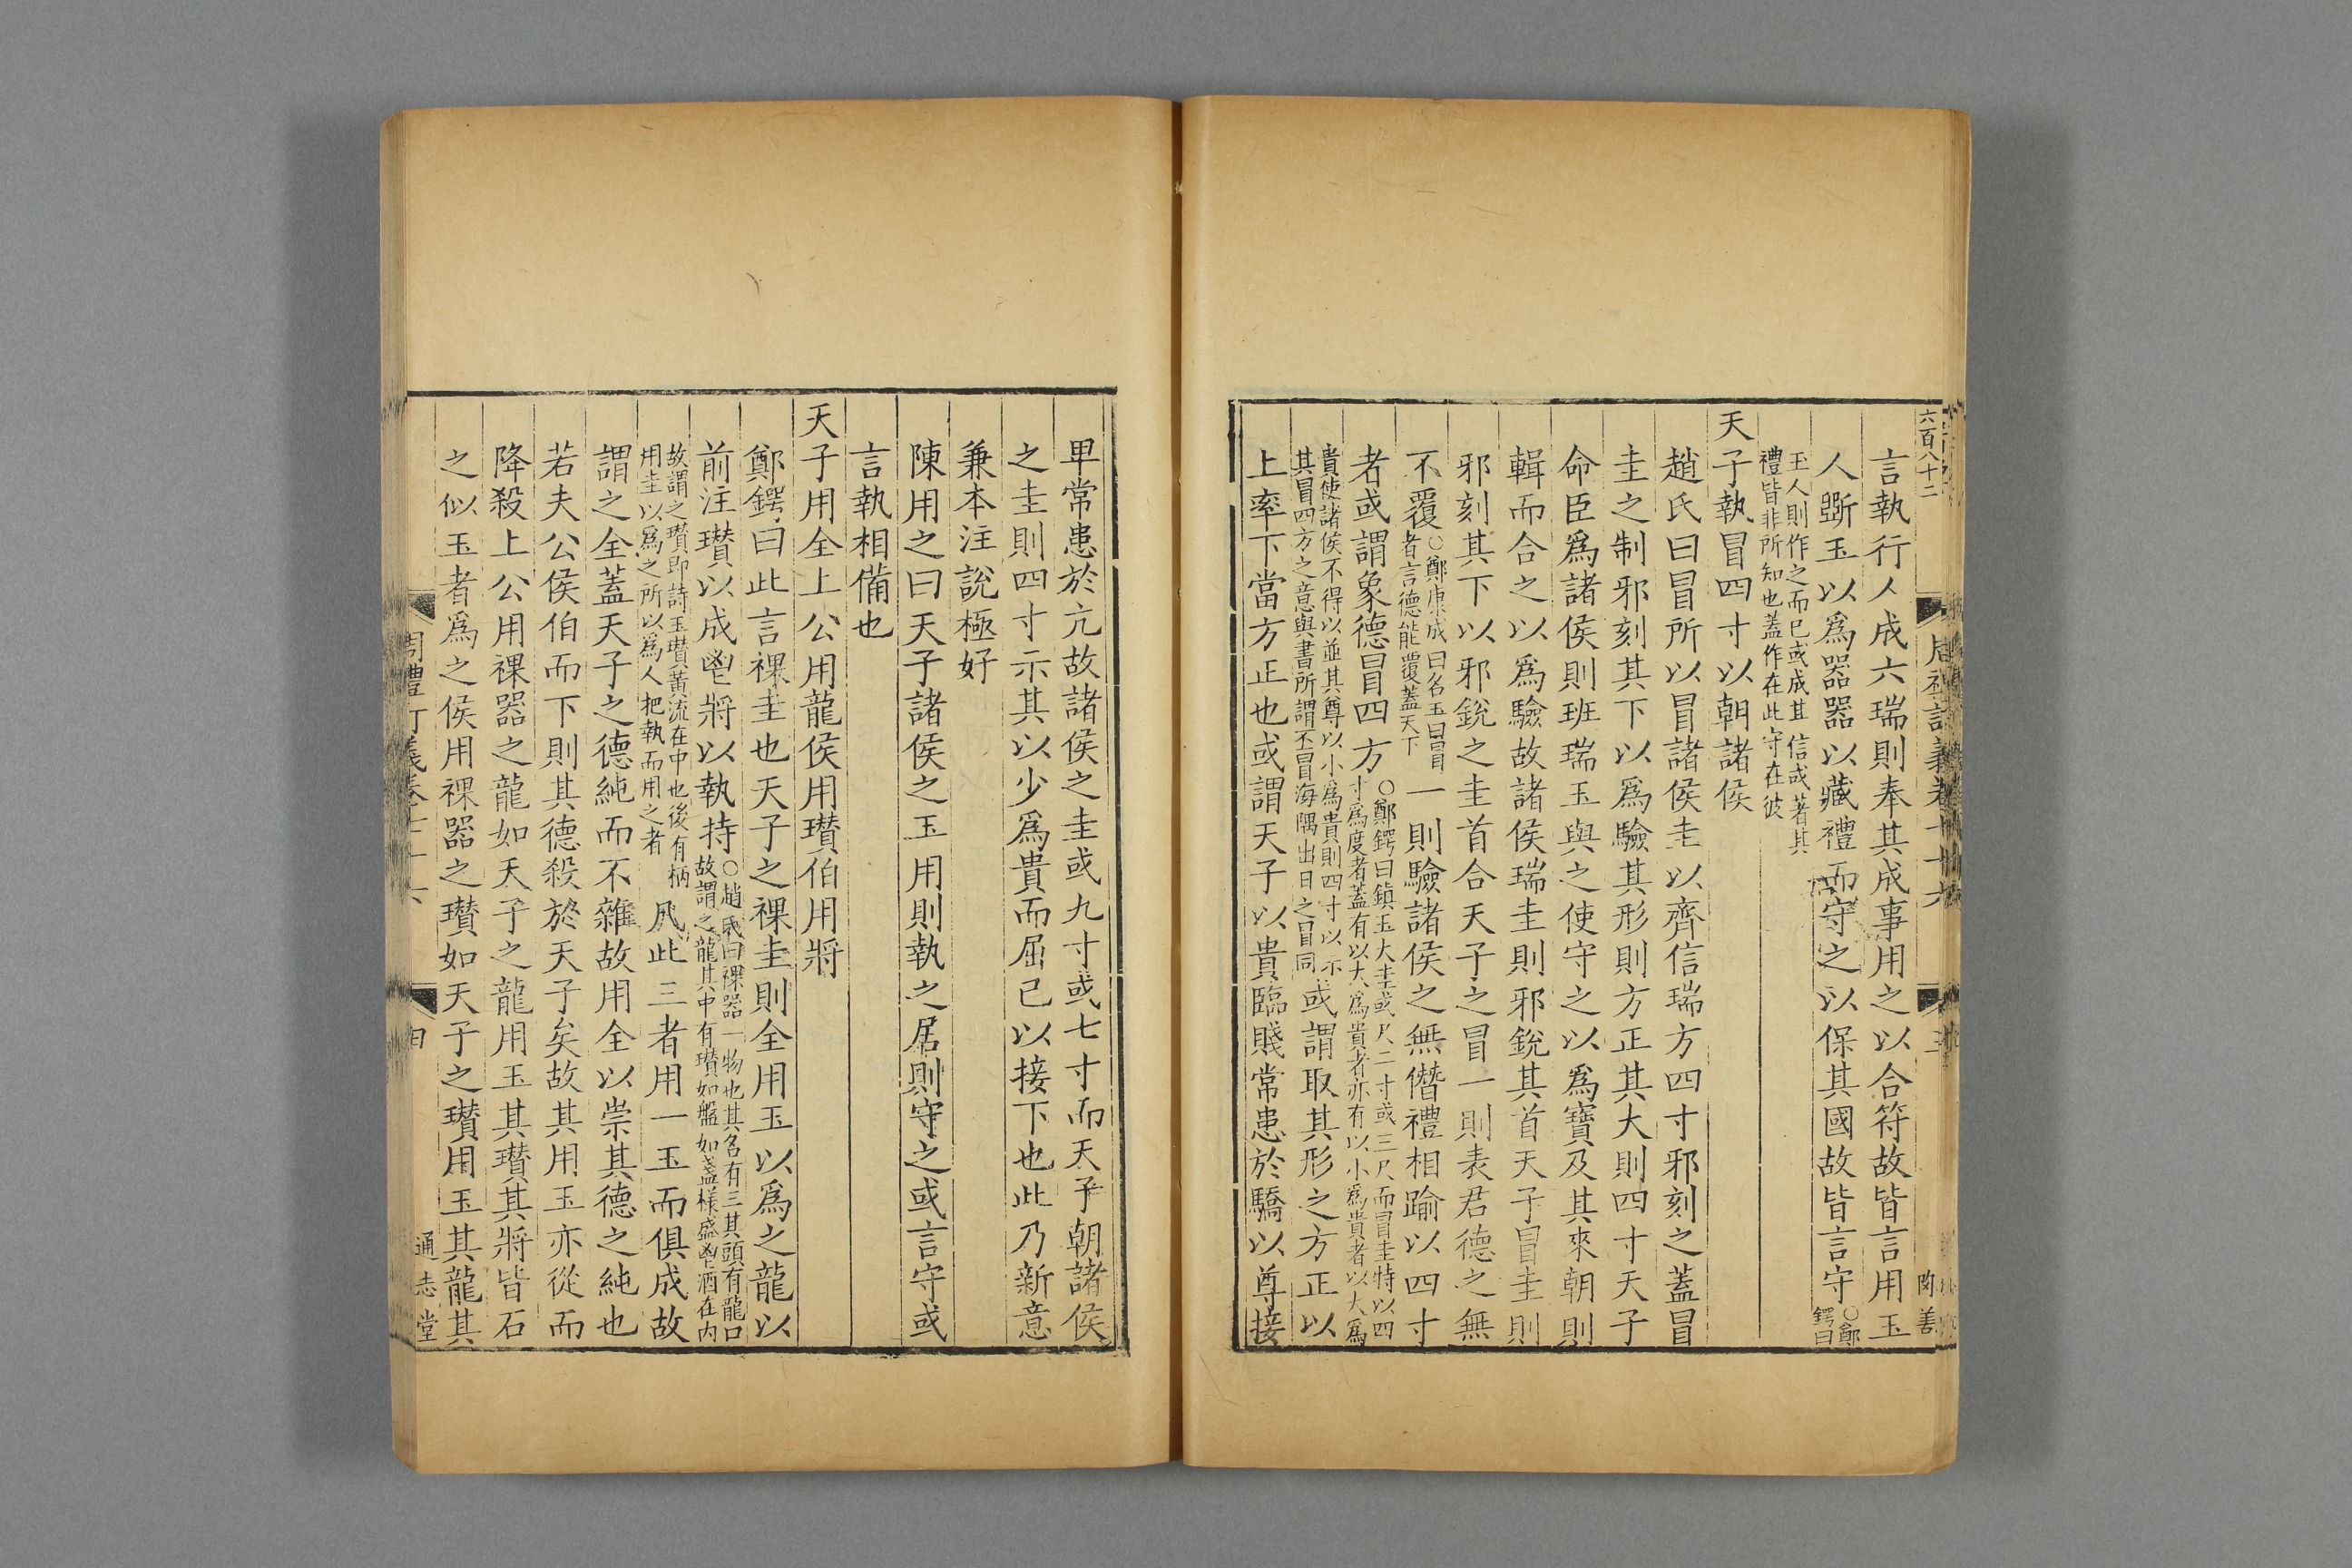 六百八十二
陶善
言執行人成六瑞則奉其成事用之以合符故皆言用玉
人斲玉以爲器器以藏禮而守之以保其國故皆言守○鄭鍔曰
玉人則作之而已或成其信或著其
禮皆非所知也蓋作在此守在彼
天子執冒四寸以朝諸侯
趙氏曰冒所以冒諸侯圭以齊信瑞方四寸邪刻之蓋冒
圭之制邪刻其下以爲驗其形則方正其大則四寸天子
命臣爲諸侯則班瑞玉與之使守之以爲寶及其來朝則
輯而合之以爲驗故諸侯瑞圭則邪銳其首天子冒圭則
邪刻其下以邪銳之圭首合天子之冒一則表君德之無
不覆○鄭康成曰名玉曰冒者言德能覆蓋天下一則驗諸侯之無僭禮相踰以四寸
者或謂象德冒四方○鄭鍔曰鎮玉大圭或尺二寸或三尺而冒圭特以四寸爲度者蓋有以大爲貴者亦有以小爲貴者以大爲
貴使諸侯不得以並其尊以小爲貴則四寸以示其冒四方之意與書所謂丕冒海隅出日之冒同或謂取其形之方正以
上率下當方正也或謂天子以貴臨賤常患於驕以尊接
卑常患於亢故諸侯之圭或九寸或七寸而天子朝諸侯
之圭則四寸示其以少爲貴而屈己以接下也此乃新意
兼本注說極好
陳用之曰天子諸侯之玉用則執之居則守之或言守或
言執相備也
天子用全上公用龍侯用瓚伯用將
鄭鍔曰此言祼圭也天子之祼圭則全用玉以爲之龍以
前注瓚以成鬯將以執持○趙氏曰祼器一物也其名有三其頭有龍口故謂之龍其中有瓚如盤如盞樣盛鬯酒在內
故謂之瓚即詩玉瓚黃流在中也後有柄用圭以爲之所以爲人把執而用之者凡此三者用一玉而俱成故
謂之全蓋天子之德純而不雜故用全以崇其德之純也
若夫公侯伯而下則其德殺於天子矣故其用玉亦從而
降殺上公用祼器之龍如天子之龍用玉其瓚其將皆石
之似玉者爲之侯用祼器之瓚如天子之瓚用玉其龍其
通志堂